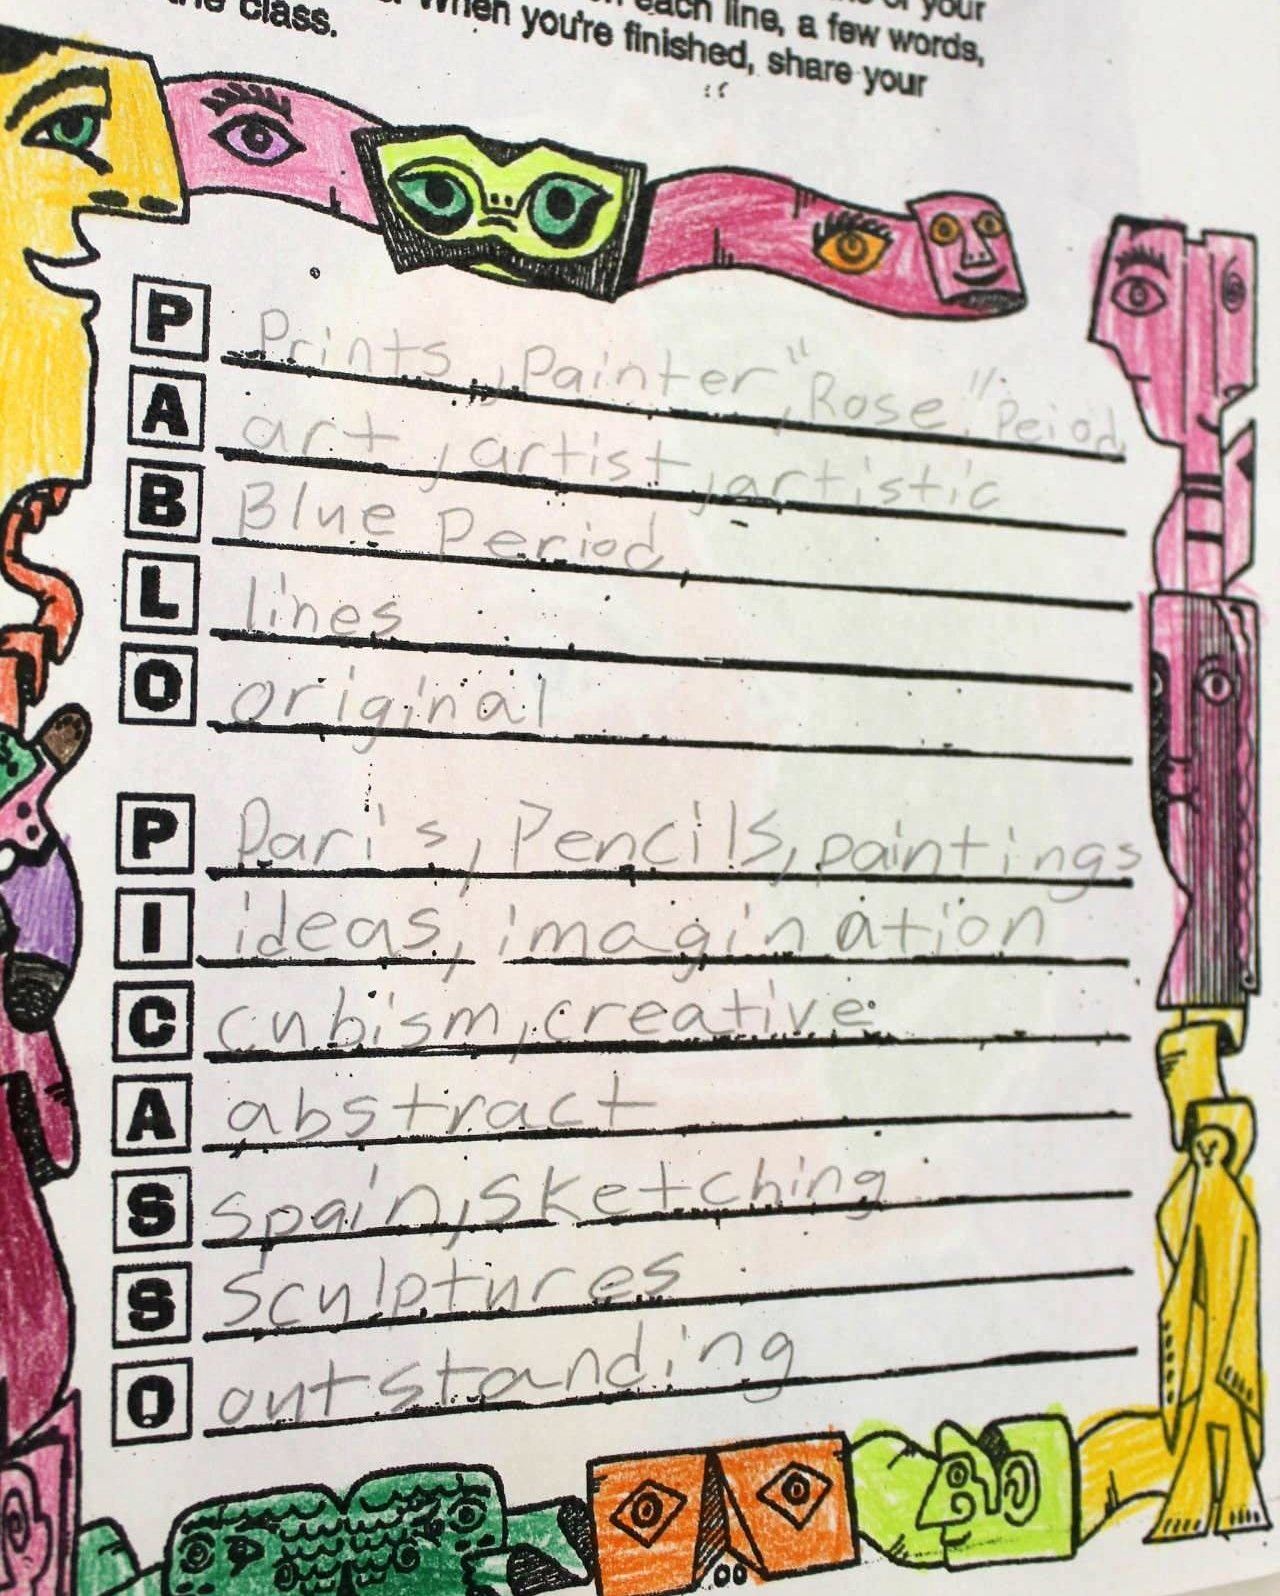 each line, a few words,
the class. When you're finished, share your
P Prints, Painter, "Rose" Peiod,
A art, artist, artistic
B Blue Period,
L lines
O original
P Paris, Pencils, paintings
I ideas, imagination
C cubism, creative
A abstract
S spain, sketching
S sculptures
O outstanding